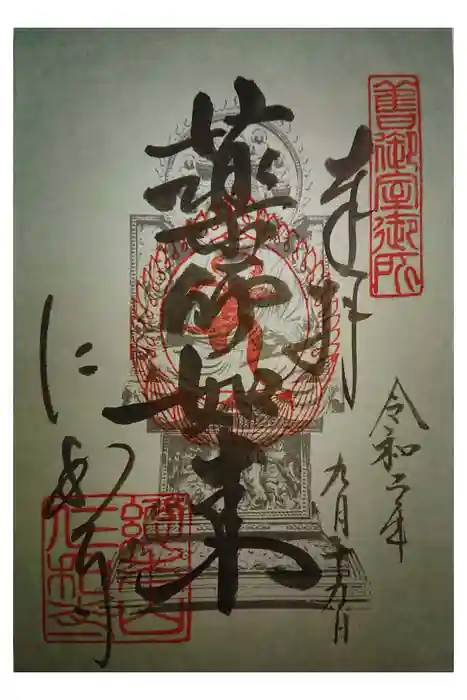 舊御室御所
奉拝
令和二年
九月十九日
薬師如来
仁和寺
總本山
仁和寺